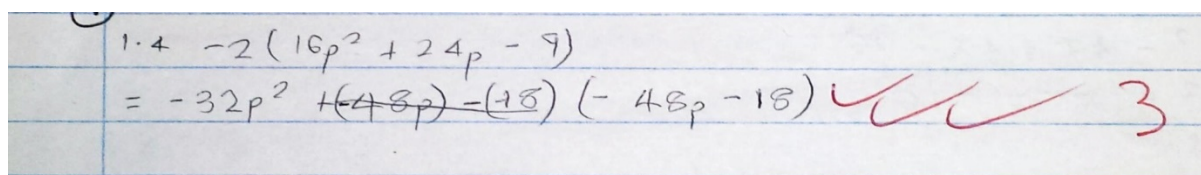 1.4 -2(16p² + 24p - 9)
= -32p² +(-48p) -(18) (- 48p - 18) ✓✓✓ 3